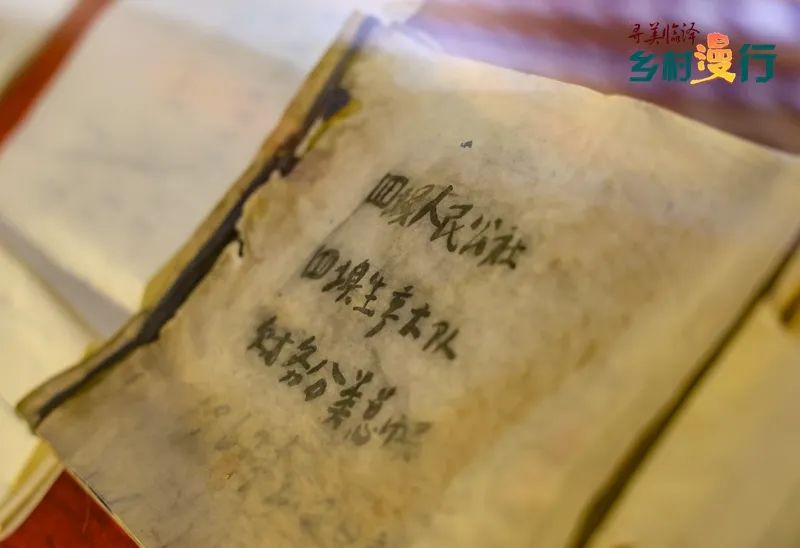 寻美临泽
乡村漫行
四坝人民公社
四坝生产大队
财务分类总账